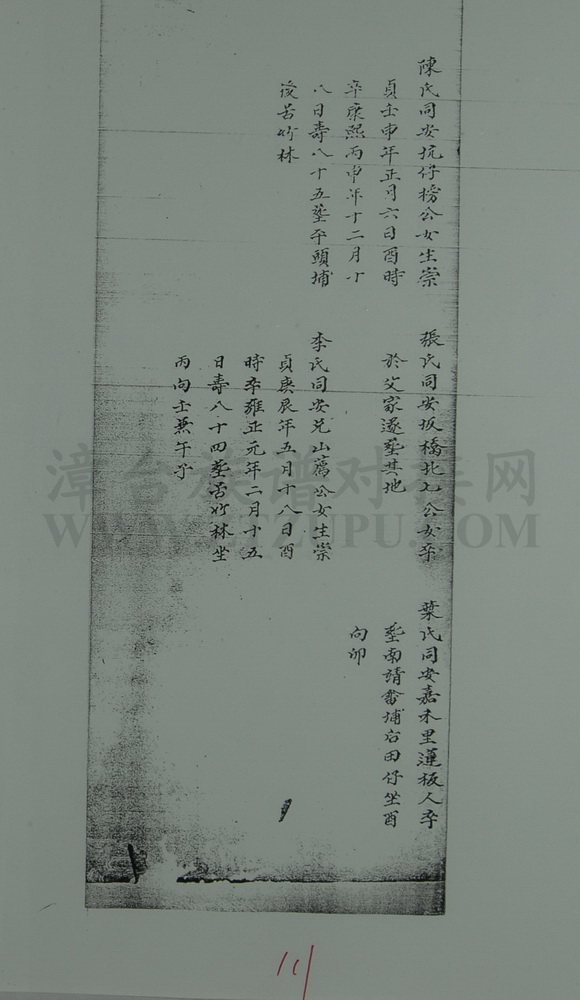 陳氏同安坑仔榜公女生崇
貞壬申年正月六日酉時
卒康熙丙申年十二月十
八日壽八十五塟平頭埔
後苦竹林
張氏同安坂橋北七公女卒
於父家遂塟其地
李氏同安兑山公女生崇
貞庚辰年五月十八日酉
時卒雍正元年二月十五
日壽八十四塟苦竹林坐
丙向壬兼午子
葉氏同安嘉禾里蓮板人卒
塟南靖畨埔后田仔坐酉
向卯
漳台族谱对接网
11